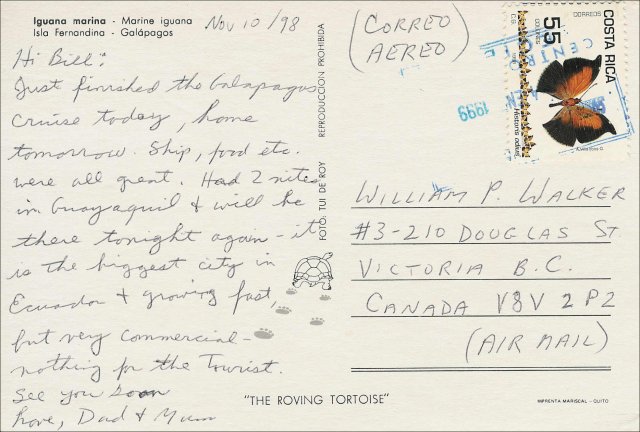 Iguana marina - Marine iguana
Isla Fernandina - Galápagos
Nov 10/98
Hi Bill:
Just finished the Galapagos
cruise today, home
tomorrow. Ship, food etc.
were all great. Had 2 nites
in Guayaquil & will be
there tonight again - it
is the biggest city in
Ecuador & growing fast,
but very commercial -
nothing for the Tourist.
See you soon
Love, Dad & Mum
FOTO: TUI DE ROY REPRODUCCION PROHIBIDA
"THE ROVING TORTOISE"
(CORREO
AEREO)
CORREOS
COSTA RICA
55
COLONES
1999
CENTRO
WILLIAM P. WALKER
#3-210 DOUGLAS ST.
VICTORIA B.C.
CANADA V8V 2P2
(AIR MAIL)
IMPRENTA MARISCAL - QUITO